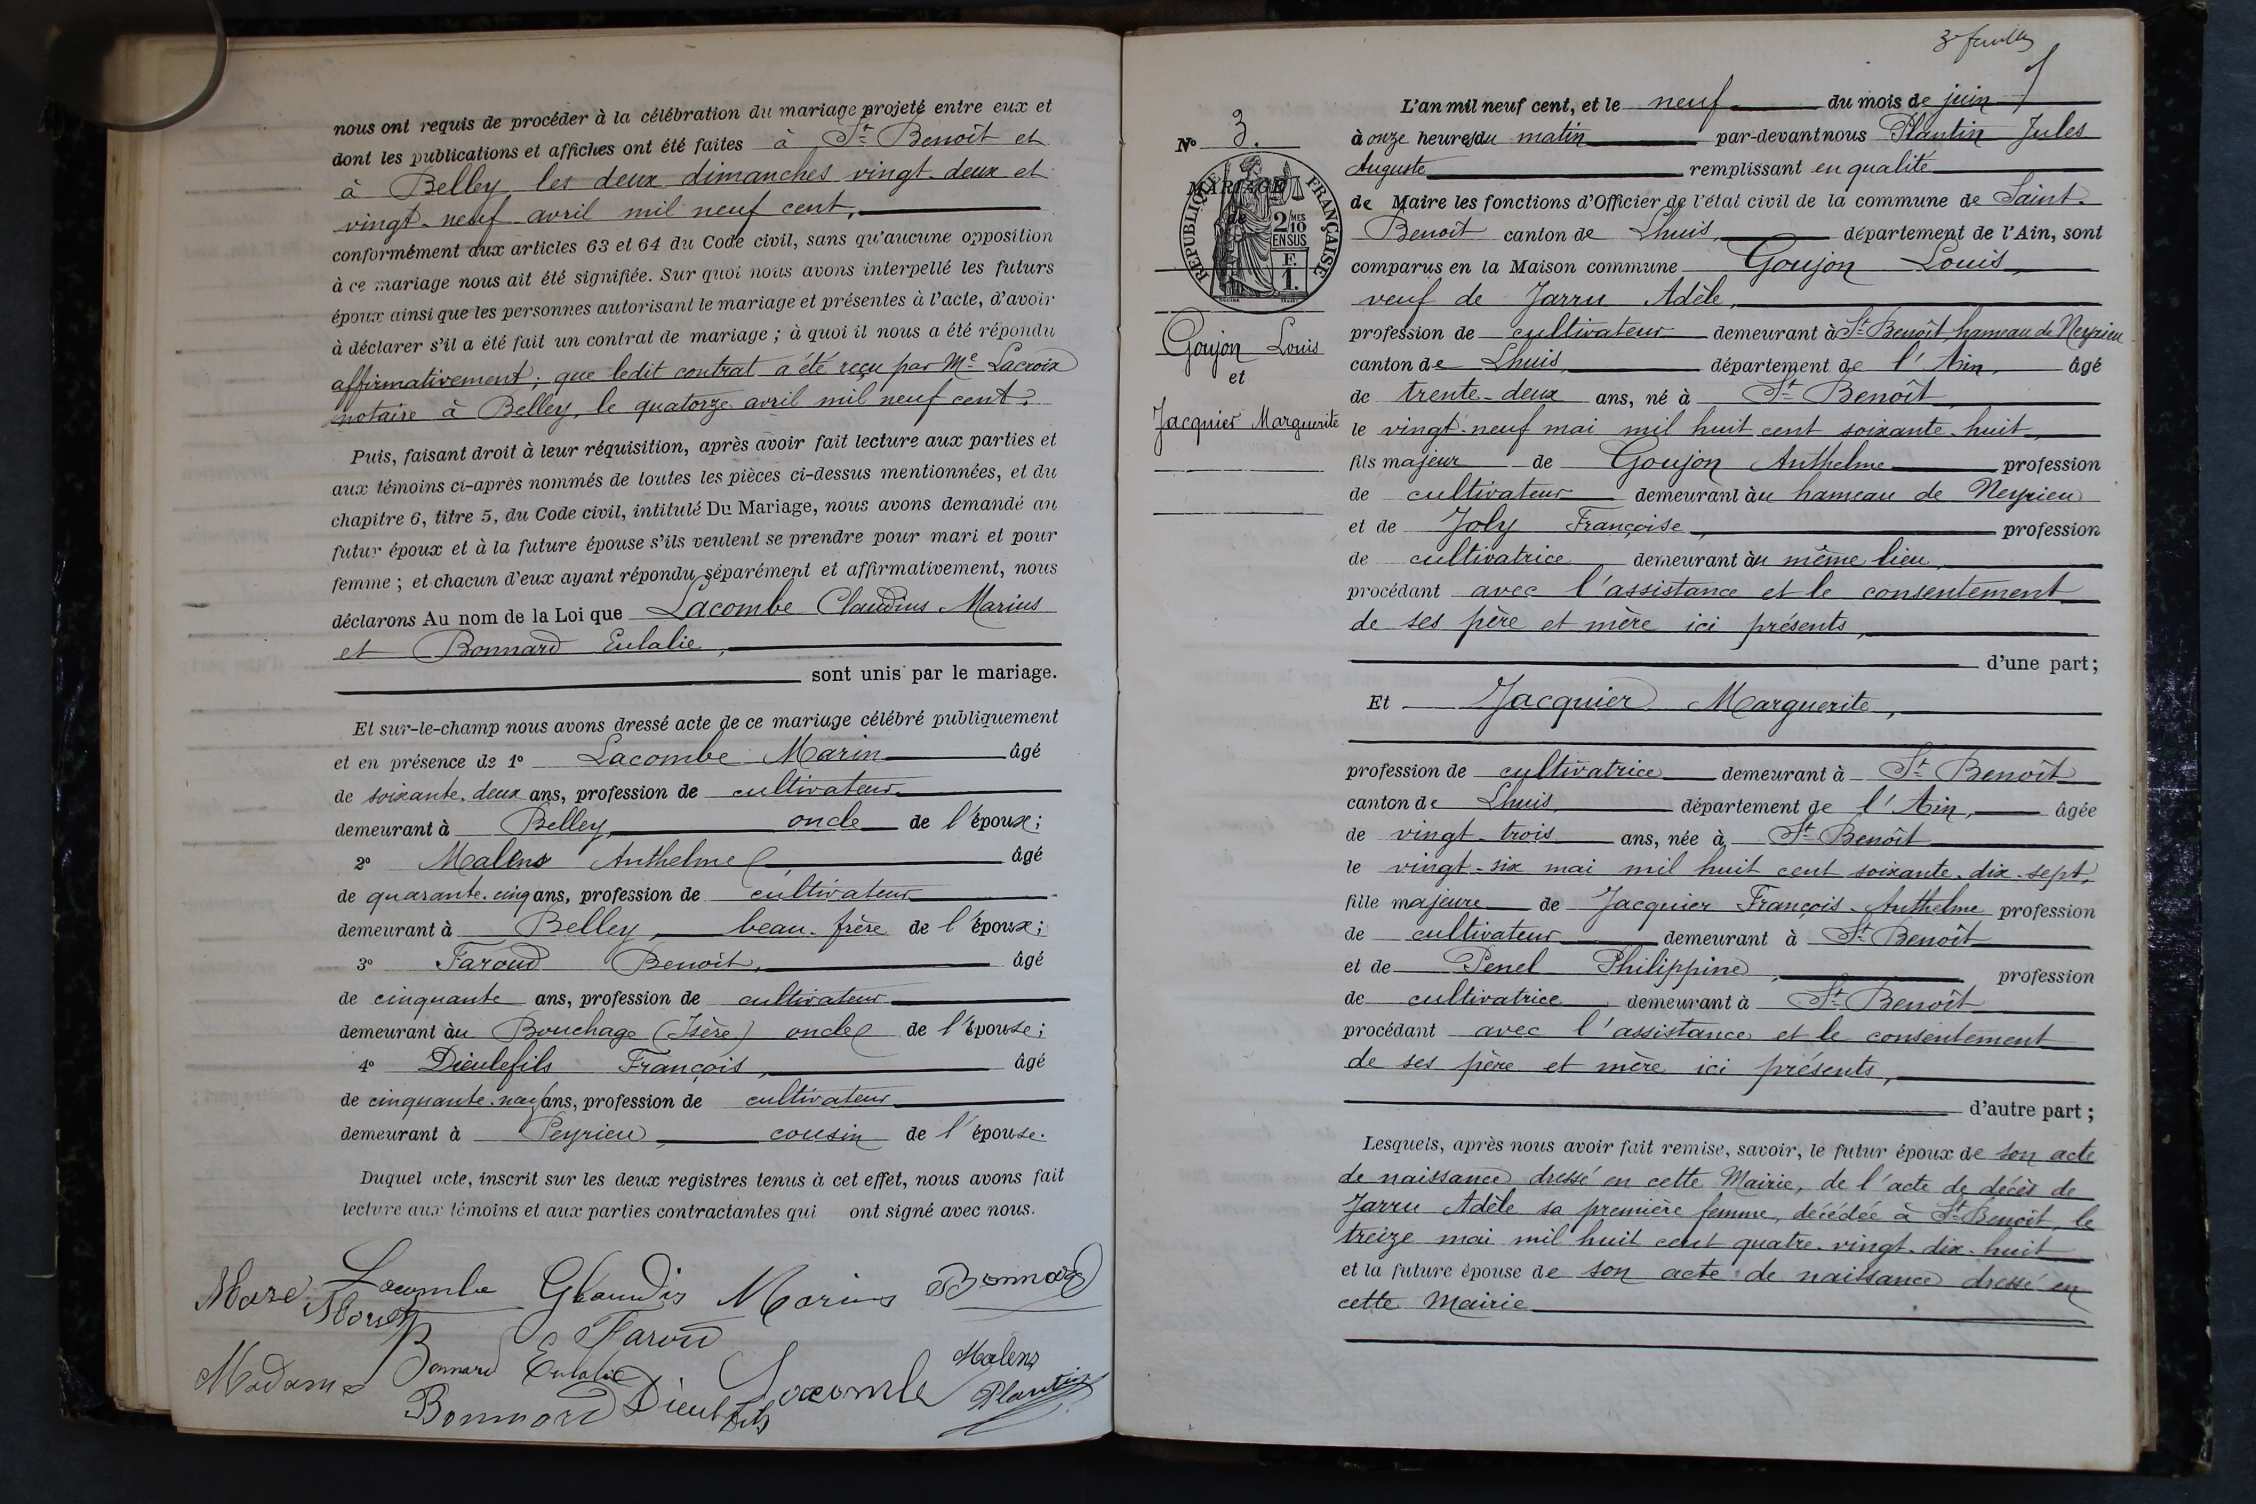 nous ont requis de procéder à la célébration du mariage projeté entre eux et
dont les publications et affiches ont été faites à St Benoît et
à Belley, les deux dimanches vingt-deux et
vingt-neuf avril mil neuf cent,
conformément aux articles 63 et 64 du Code civil, sans qu'aucune opposition
à ce mariage nous ait été signifiée. Sur quoi nous avons interpellé les futurs
époux ainsi que les personnes autorisant le mariage et présentes à l'acte, d'avoir
à déclarer s'il a été fait un contrat de mariage ; à quoi il nous a été répondu
affirmativement ; que ledit contrat a été reçu par Me Lacroix
notaire à Belley, le quatorze avril mil neuf cent.
Puis, faisant droit à leur réquisition, après avoir fait lecture aux parties et
aux témoins ci-après nommés de toutes les pièces ci-dessus mentionnées, et du
chapitre 6, titre 5, du Code civil, intitulé Du Mariage, nous avons demandé au
futur époux et à la future épouse s'ils veulent se prendre pour mari et pour
femme ; et chacun d'eux ayant répondu séparément et affirmativement, nous
déclarons Au nom de la Loi que Lacombe Claudius Marius
et Bonnard Eulalie,
sont unis par le mariage.
Et sur-le-champ nous avons dressé acte de ce mariage célébré publiquement
et en présence de 1° Lacombe Marin âgé
de soixante-deux ans, profession de cultivateur
demeurant à Belley, oncle de l'époux ;
2° Malens Anthelme âgé
de quarante-cinq ans, profession de cultivateur
demeurant à Belley, beau-frère de l'époux ;
3° Faroud Benoît, âgé
de cinquante ans, profession de cultivateur
demeurant au Bouchage (Isère) oncle de l'épouse ;
4° Dieulefils François, âgé
de cinquante-neuf ans, profession de cultivateur
demeurant à Peyrieu, cousin de l'épouse.
Duquel acte, inscrit sur les deux registres tenus à cet effet, nous avons fait
lecture aux témoins et aux parties contractantes qui ont signé avec nous.
Lacombe Marius Bonnard
Farou
Madame Bonnard Eulalie Malens
Bonnard Dieulefils Lacombe Plantin
3e feuille
N° 3.
MARIAGE
de
RÉPUBLIQUE FRANÇAISE
2/10MES
EN SUS
F.
1.
Goujon Louis
et
Jacquier Marguerite
L'an mil neuf cent, et le neuf du mois de juin
à onze heures du matin par-devant nous Plantin Jules
Auguste remplissant en qualité
de Maire les fonctions d'Officier de l'état civil de la commune de Saint-
Benoît canton de Lhuis, département de l'Ain, sont
comparus en la Maison commune Goujon Louis,
veuf de Jarru Adèle,
profession de cultivateur demeurant à St Benoît, hameau de Neyrieu
canton de Lhuis, département de l'Ain, âgé
de trente-deux ans, né à St Benoît,
le vingt-neuf mai mil huit cent soixante-huit,
fils majeur de Goujon Anthelme profession
de cultivateur demeurant au hameau de Neyrieu
et de Joly Françoise, profession
de cultivatrice demeurant au même lieu,
procédant avec l'assistance et le consentement
de ses père et mère ici présents,
d'une part ;
Et Jacquier Marguerite,
profession de cultivatrice demeurant à St Benoît
canton de Lhuis, département de l'Ain, âgée
de vingt-trois ans, née à St Benoît
le vingt-six mai mil huit cent soixante-dix-sept,
fille majeure de Jacquier François-Anthelme profession
de cultivateur demeurant à St Benoît
et de Penel Philippine, profession
de cultivatrice demeurant à St Benoît
procédant avec l'assistance et le consentement
de ses père et mère ici présents,
d'autre part ;
Lesquels, après nous avoir fait remise, savoir, le futur époux de son acte
de naissance dressé en cette Mairie, de l'acte de décès de
Jarru Adèle sa première femme, décédée à St Benoît, le
treize mai mil huit cent quatre-vingt-dix-huit
et la future épouse de son acte de naissance dressé en
cette Mairie